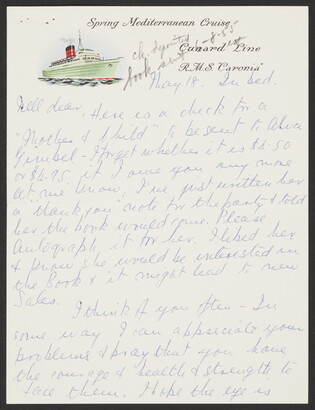 Spring Mediterranean Cruise
Cunard Line
R.M.S. "Caronia"
May 18. In bed.
dear. Here is a check for a
"Mother & Child" to be sent to Alva
Gimbel - I forget whether it is $2.50
or $2.95. if I owe you any more
let me know. I've just written her
a thank you note for the party & told
her the book would come. Please
Autograph it for her. I liked her
& know she would be interested in
the Book & it might lead to new
Sales.
I think of you often - In
some way I can appreciate your
problems & pray that you have
the courage & health & strength to
face them. Hope the eye is